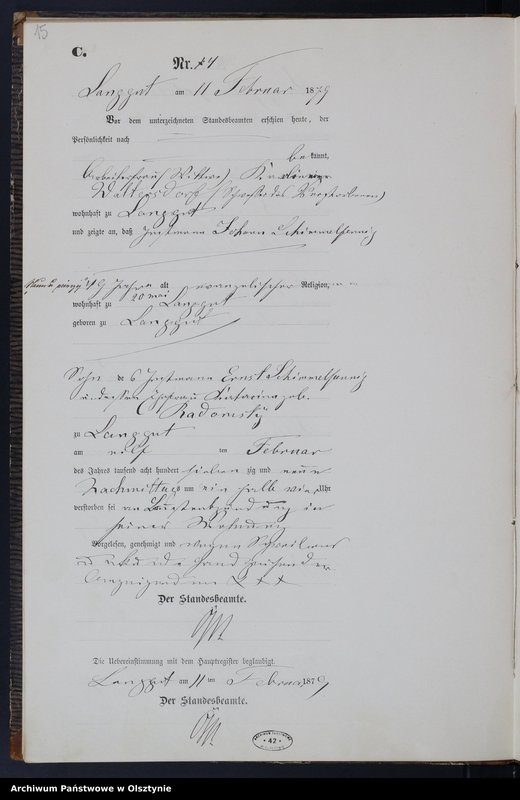 15
C.
Nr. 14
Langgut am 11 Februar 1879
Vor dem unterzeichneten Standesbeamten erschien heute, der
Persönlichkeit nach
be kannt,
Arbeiterfrau (Wittwe),
(Schwester des Verstorbenen)
wohnhaft zu Langgut
und zeigte an, daß Instmann Johann Schimmelpfennig
49 Jahre alt evangelischer Religion,
wohnhaft zu Langgut
geboren zu Langgut
Sohn des Instmann Ernst Schimmelpfennig
und dessen Ehefrau Katarina geb.
Radomsky
zu Langgut
am elf ten Februar
des Jahres tausend acht hundert sieben zig und neun
Nachmittags um ein halb vier Uhr
verstorben sei an Lungenentzündung in
seiner Wohnung
Vorgelesen, genehmigt und wegen Schreibens
Unkunde Handzeichen der
Anzeigenden + + +
Der Standesbeamte.
Die Uebereinstimmung mit dem Hauptregister beglaubigt.
Langgut am 11 ten Februar 1879
Der Standesbeamte.
42
Archiwum Państwowe w Olsztynie